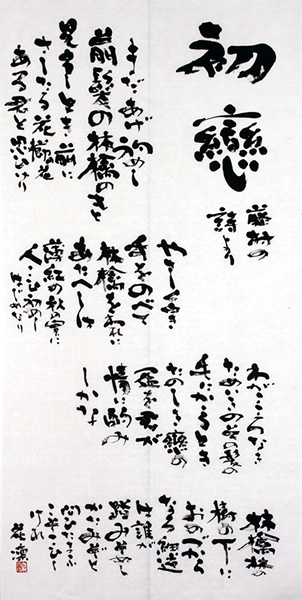 初戀
藤村の
詩より
まだあげ初めし
前髪の林檎のもと
見えしとき前に
さしたる花櫛花
ある君と思ひけり
やさしく白き
手をのべて
林檎をわれに
あたへしは
薄紅の秋の実に
人こひ初めし
はじめなり
わがこころなき
ためいきのその髪の
毛にかかるとき
たのしき戀の
盃を君が
情に酌み
しかな
林檎林の
樹の下に
おのづから
なる細道
は誰が
踏みそめし
かたみぞと
問ひたまふ
こそこひし
けれ